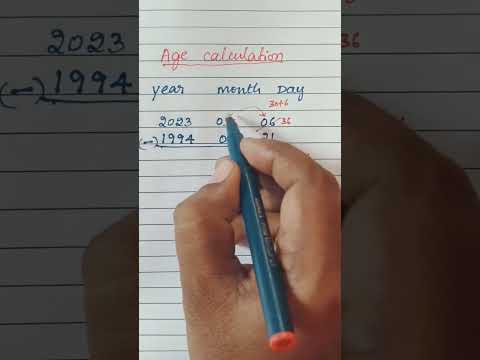 Age calculation
year month Day
30+6
2023 0 06 36
(-) 1994 0 21
2023
(-) 1994
36